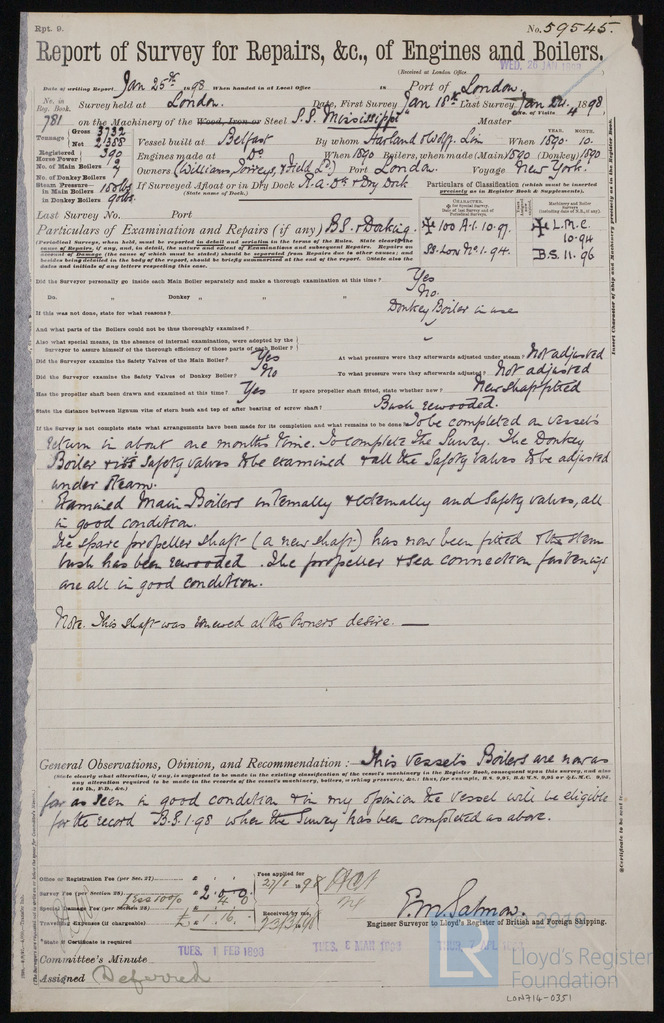 Rpt. 9.
No. 59545.
Report of Survey for Repairs, &c., of Engines and Boilers.
WED. 26 JAN 1898
(Received at London Office
Date of writing Report Jan 25th 1898 When handed in at Local Office 18 Port of London.
No. in Reg. Book. Survey held at London. Date, First Survey Jan 18th Last Survey Jan 24 1898
(No. of Visits 4
781 on the Machinery of the Wood, Iron or Steel S.S. "Mississippi" Master
Tonnage Gross 3732
Net 2388
Vessel built at Belfast By whom Harland & Wolff. Lim When 1890. 10.
YEAR. MONTH.
Registered Horse Power 390
Engines made at Do When 1890 Boilers, when made (Main) 1890 (Donkey) 1890
No. of Main Boilers 2
Owners (Williams, Torreys, & Field Ld) Port London. Voyage New York.
No. of Donkey Boilers
Steam Pressure—
in Main Boilers 150 lbs
in Donkey Boilers 90 lbs.
If Surveyed Afloat or in Dry Dock R.a. Dk & Dry Dock
(State name of Dock.)
Particulars of Classification (which must be inserted precisely as in Register Book & Supplements).
Last Survey No. Port
Particulars of Examination and Repairs (if any) B.S. & Docking.
✠ 100 A.1. 10.97.
SS. Lon No. 1. 94.
✠ L.M.C. 10.94
B.S. 11.96
(Periodical Surveys, when held, must be reported in detail and seriatim in the terms of the Rules. State clearly the cause of Repairs, if any, and, in detail, the nature and extent of Examinations and subsequent Repairs. Repairs on account of Damage (the cause of which must be stated) should be separated from Repairs due to other causes; and besides being detailed in the body of the report, should be briefly summarised at the end of the report. (State also the dates and initials of any letters respecting this case.
Did the Surveyor personally go inside each Main Boiler separately and make a thorough examination at this time? Yes
Do. „ Donkey „ „ „ „ No.
If this was not done, state for what reasons? Donkey Boiler in use
And what parts of the Boilers could not be thus thoroughly examined?
Also what special means, in the absence of internal examination, were adopted by the Surveyor to assure himself of the thorough efficiency of those parts of each Boiler?
Did the Surveyor examine the Safety Valves of the Main Boiler? Yes At what pressure were they afterwards adjusted under steam? Not adjusted
Did the Surveyor examine the Safety Valves of Donkey Boiler? No To what pressure were they afterwards adjusted? Not adjusted
Has the propeller shaft been drawn and examined at this time? Yes If spare propeller shaft fitted, state whether new? New shaft fitted
State the distance between lignum vitæ of stern bush and top of after bearing of screw shaft? Bush rewooded.
If the Survey is not complete state what arrangements have been made for its completion and what remains to be done To be completed on vessel's
return in about one months time. To complete the Survey. The Donkey
Boiler & its Safety Valves to be examined & all the Safety Valves to be adjusted
under steam.
Examined Main Boilers internally & externally and Safety Valves, all
in good condition.
The spare propeller shaft (a new shaft) has now been fitted & the stern
bush has been rewooded. The propeller & sea connection fastenings
are all in good condition.
Note. This shaft was renewed at the Owners desire. —
General Observations, Opinion, and Recommendation :— This Vessels Boilers are now as
(State clearly what alteration, if any, is suggested to be made in the existing classification of the vessel's machinery in the Register Book, consequent upon this survey, and also
far as seen in good condition & in my opinion the Vessel will be eligible
for the record B.S. 1.98 when the Survey has been completed as above.
Office or Registration Fee (per Sec. 27) £
Survey Fee (per Section 28) Less 10% £ 2. 0. 0
Special Damage Fee (per Section 28) £ 4. 0
Travelling Expenses (if chargeable) £ 1. 16. -
Fees applied for
27/1 1898
Received by me,
23/3/98
E.M. Salmon.
Engineer Surveyor to Lloyd's Register of British and Foreign Shipping.
*State if Certificate is required
Committee's Minute TUES. 1 FEB 1898 TUES. 8 MAR 1898
Assigned Deferred
© 2019
LR
Lloyd's Register
Foundation
LON714-0351